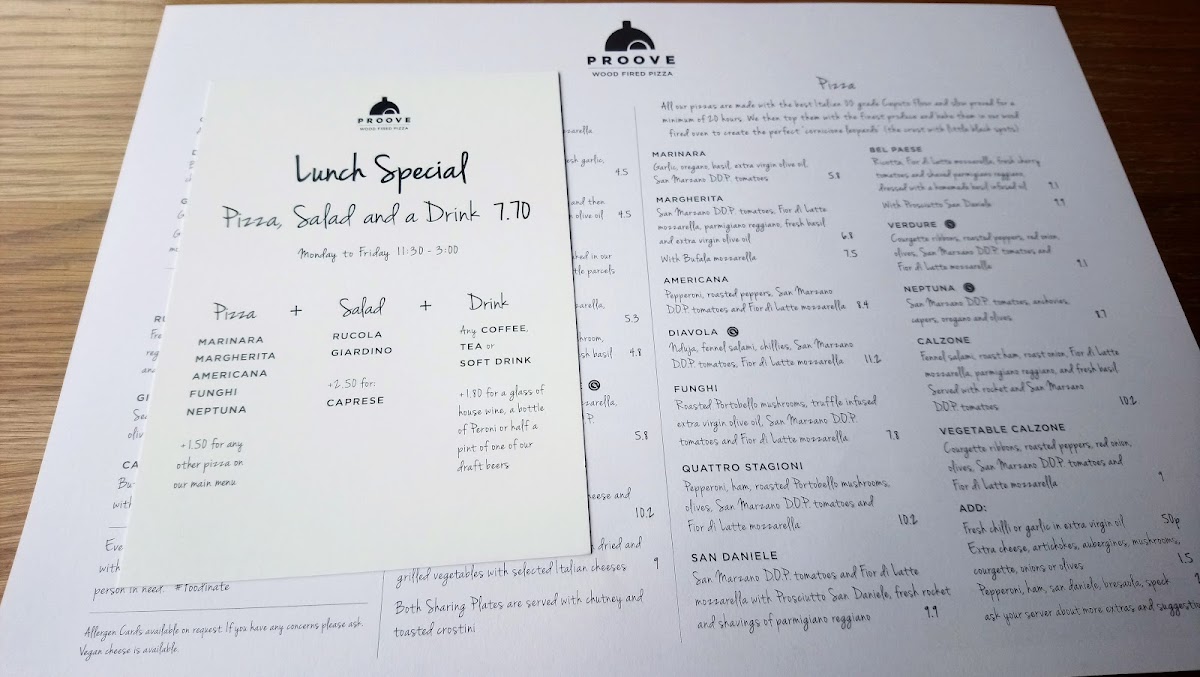 PROOVE
WOOD FIRED PIZZA
Lunch Special
Pizza, Salad and a Drink 7.70
Monday to Friday 11:30 - 3:00
Pizza + Salad + Drink
MARINARA
MARGHERITA
AMERICANA
FUNGHI
NEPTUNA
+1.50 for any
other pizza on
our main menu
RUCOLA
GIARDINO
+2.50 for:
CAPRESE
Any COFFEE,
TEA or
SOFT DRINK
+1.80 for a glass of
house wine, a bottle
of Peroni or half a
pint of one of our
draft beers
PROOVE
WOOD FIRED PIZZA
person in need. #foodinate
Allergen Cards available on request. If you have any concerns please ask.
Vegan cheese is available.
esh garlic,
4.5
and then
olive oil 4.5
hed in our
tle parcels
5.3
sh basil 4.8
5.8
cheese and
10.2
dried and
grilled vegetables with selected Italian cheeses 9
Both Sharing Plates are served with chutney and
toasted crostini
Pizza
All our pizzas are made with the best Italian 00 grade Caputo flour and slow proved for a
minimum of 20 hours. We then top them with the finest produce and bake them in our wood
fired oven to create the perfect 'cornicione leopardo' (the crust with little black spots)
MARINARA
Garlic, oregano, basil, extra virgin olive oil,
San Marzano D.O.P. tomatoes 5.8
MARGHERITA
San Marzano D.O.P. tomatoes, Fior di Latte
mozzarella, parmigiano reggiano, fresh basil
and extra virgin olive oil 6.8
With Bufala mozzarella 7.5
AMERICANA
Pepperoni, roasted peppers, San Marzano
D.O.P. tomatoes and Fior di Latte mozzarella 8.4
DIAVOLA
Nduja, fennel salami, chillies, San Marzano
D.O.P. tomatoes, Fior di Latte mozzarella 11.2
FUNGHI
Roasted Portobello mushrooms, truffle infused
extra virgin olive oil, San Marzano D.O.P.
tomatoes and Fior di Latte mozzarella 7.8
QUATTRO STAGIONI
Pepperoni, ham, roasted Portobello mushrooms,
olives, San Marzano D.O.P. tomatoes and
Fior di Latte mozzarella 10.2
SAN DANIELE
San Marzano D.O.P. tomatoes and Fior di Latte
mozzarella with Prosciutto San Daniele, fresh rocket
and shavings of parmigiano reggiano 9.9
BEL PAESE
Ricotta, Fior di Latte mozzarella, fresh cherry
tomatoes and shaved parmigiano reggiano,
dressed with a homemade basil infused oil 9.1
With Prosciutto San Daniele 9.9
VERDURE
Courgette ribbons, roasted peppers, red onion,
olives, San Marzano D.O.P. tomatoes and
Fior di Latte mozzarella 9.1
NEPTUNA
San Marzano D.O.P. tomatoes, anchovies,
capers, oregano and olives 8.7
CALZONE
Fennel salami, roast ham, roast onion, Fior di Latte
mozzarella, parmigiano reggiano, and fresh basil.
Served with rocket and San Marzano
D.O.P. tomatoes 10.2
VEGETABLE CALZONE
Courgette ribbons, roasted peppers, red onion,
olives, San Marzano D.O.P. tomatoes and
Fior di Latte mozzarella 9
ADD:
Fresh chilli or garlic in extra virgin oil 50p
Extra cheese, artichokes, aubergines, mushrooms,
courgette, onions or olives 1.5
Pepperoni, ham, san daniele, bresaola, speck
ask your server about more extras and suggestio